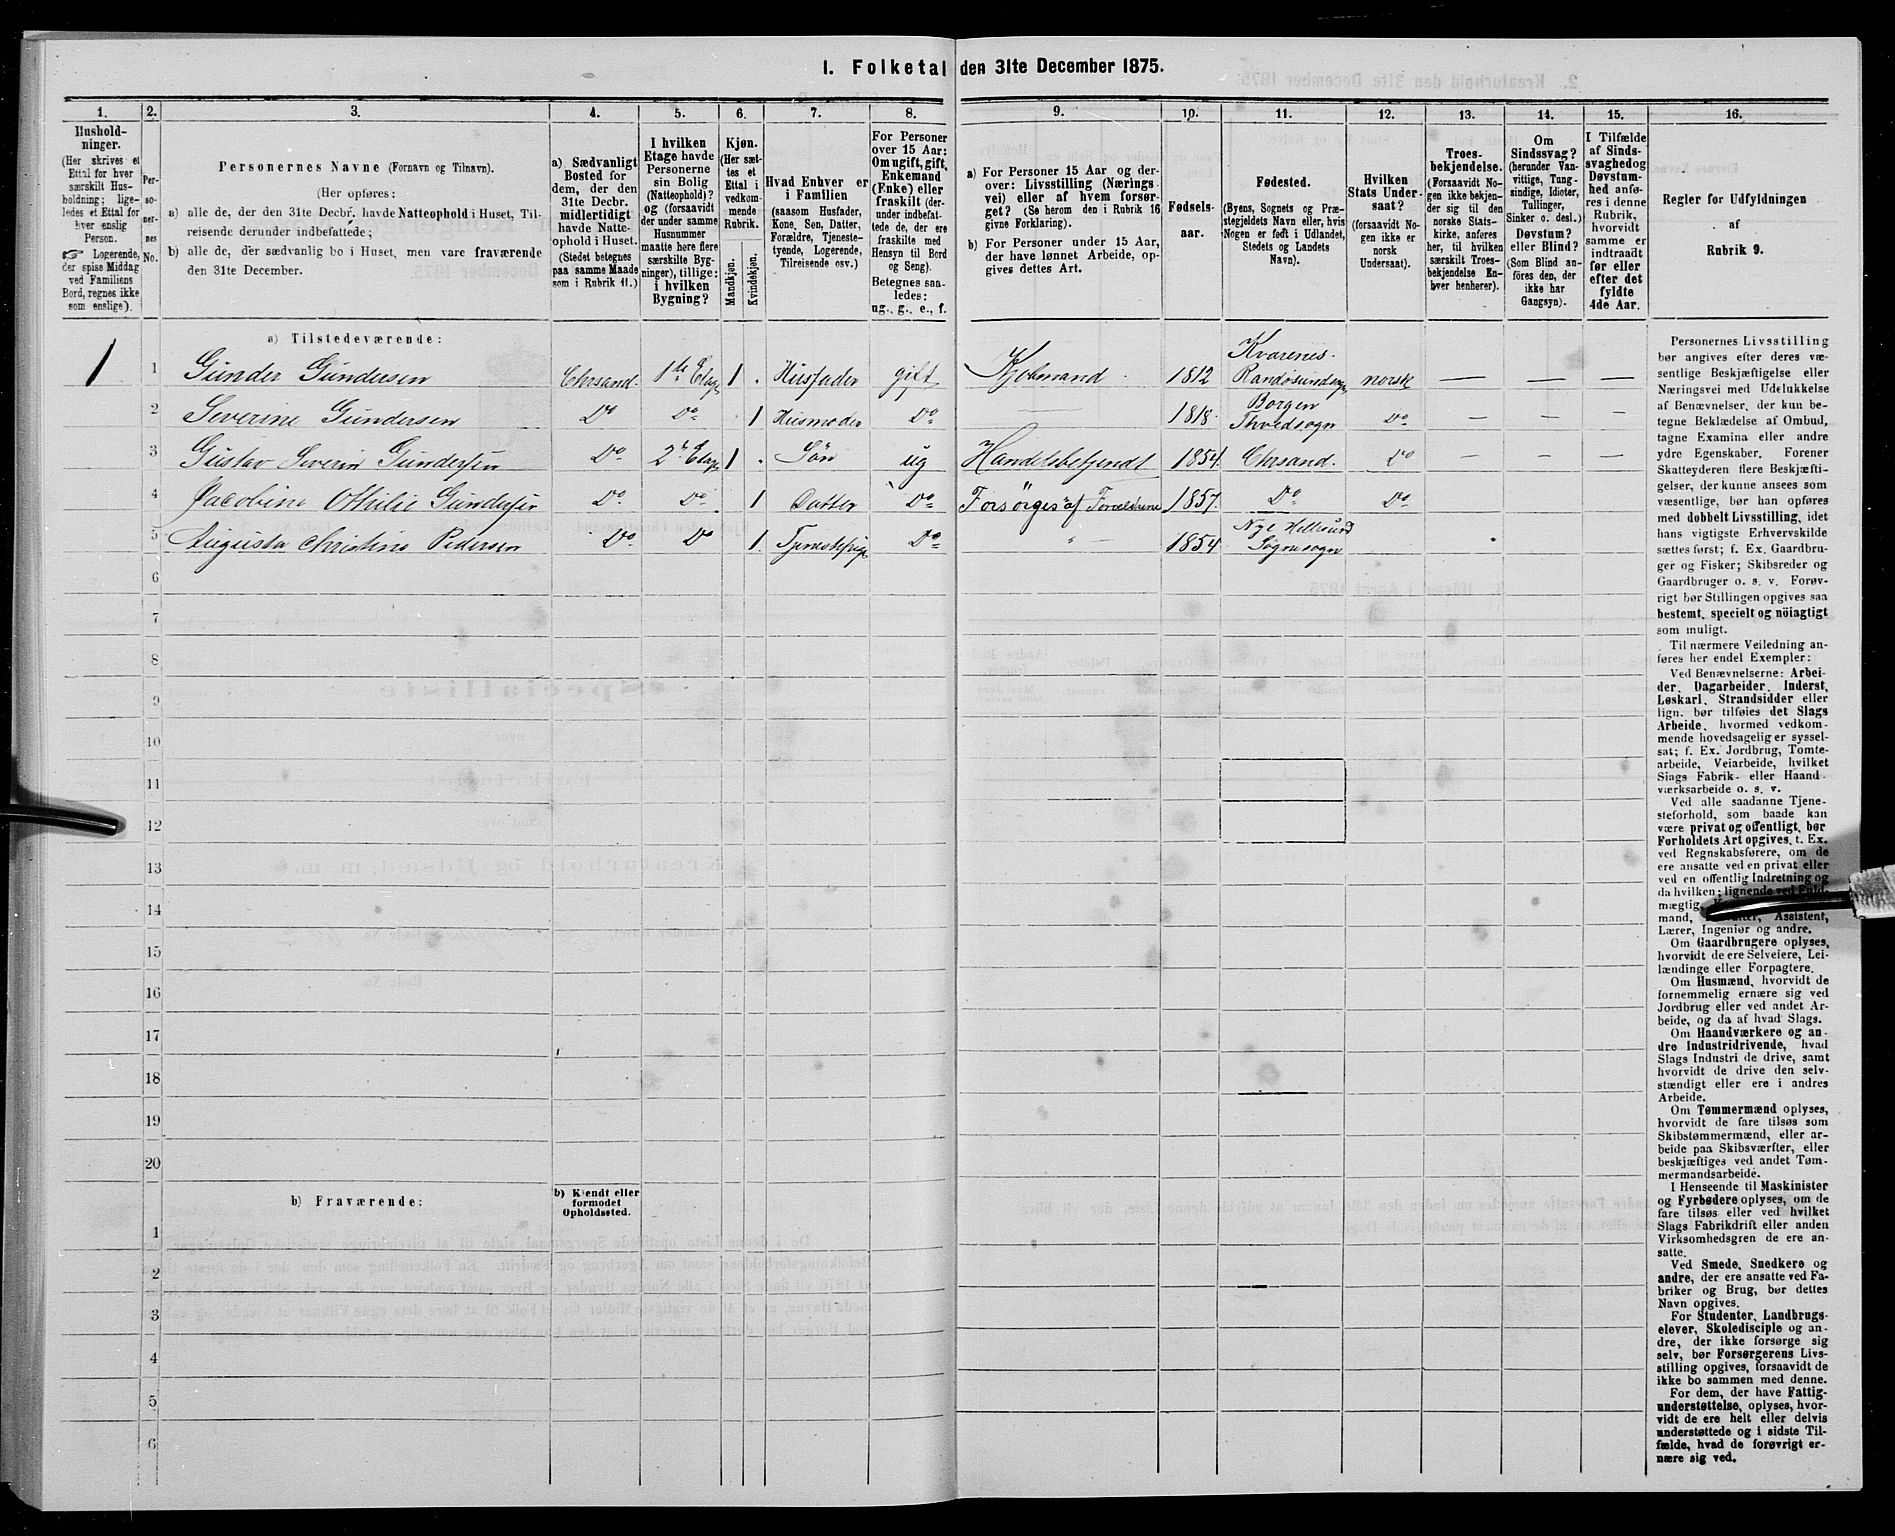 1. Folketal den 31te December 1875.
1.
Hushold-
ninger.
(Her skrives et
Ettal for hver
særskilt Hus-
holdning; lige-
ledes et Ettal for
hver enslig
Person.
☞ Logerende,
der spise Middag
ved Familiens
Bord, regnes ikke
som enslige).
2.
Per-
so-
ner-
nes
No.
3.
Personernes Navne (Fornavn og Tilnavn).
(Her opføres:
a) alle de, der den 31te Decbr. havde Natteophold i Huset, Til-
reisende derunder indbefattede;
b) alle de, der sædvanlig bo i Huset, men vare fraværende
den 31te December.
4.
a) Sædvanligt
Bosted for
dem, der den
31te Decbr.
midlertidigt
havde Natte-
ophold i Huset.
(Stedet betegnes
paa samme Maade
som i Rubrik 11.)
5.
I hvilken
Etage havde
Personerne
sin Bolig
(Natteophold)?
og (forsaavidt
der under samme
Husnummer
maatte høre flere
særskilte Byg-
ninger), tillige:
i hvilken
Bygning?
6.
Kjøn.
(Her sæt-
tes et
Ettal i
vedkom-
mende
Rubrik.
Mandkjøn.
Kvindekjøn.
7.
Hvad Enhver er
i Familien
(saasom Husfader,
Kone, Søn, Datter,
Forældre, Tjeneste-
tyende, Logerende,
Tilreisende osv.)
8.
For Personer
over 15 Aar:
Om ugift, gift,
Enkemand
(Enke) eller
fraskilt (der-
under indbefat-
tede de, der ere
fraskilte med
Hensyn til Bord
og Seng).
Betegnes saa-
ledes:
ug., g., e., f.
9.
a) For Personer 15 Aar og der-
over: Livsstilling (Nærings
vei) eller af hvem forsør-
get? (Se herom den i Rubrik 16
givne Forklaring).
b) For Personer under 15 Aar,
der have lønnet Arbeide, op-
gives dettes Art.
10.
Fødsels-
aar.
11.
Fødested.
(Byens, Sognets og Præ-
stegjeldets Navn eller, hvis
Nogen er født i Udlandet,
Stedets og Landets
Navn).
12.
Hvilken
Stats Under-
saat?
(forsaavidt No-
gen ikke er
norsk
Undersaat).
13.
Troes-
bekjendelse.
(Forsaavidt No-
gen ikke bekjen-
der sig til den
norske Stats-
kirke, anføres
her, til hvilken
særskilt Troes-
bekjendelse En-
hver henhører).
14.
Om
Sindssvag?
(herunder Van-
vittige, Tung-
sindige, Idioter,
Tullinger,
Sinker o. desl.)
Døvstum?
eller Blind?
(Som Blind an-
føres den, der
ikke har
Gangsyn).
15.
I Tilfælde
af Sinds-
svaghed og
Døvstum-
hed anfø-
res i denne
Rubrik,
hvorvidt
samme er
indtraadt
før eller
efter det
fyldte
4de Aar.
16.
Regler for Udfyldningen
af
Rubrik 9.
a) Tilstedeværende:
1 1 Gunder Gundersen Chrsand. 1te Etage 1 . Husfader gift Kjøbmand 1812 Kvarenes. Randøsund norsk — — —
2 Severine Gundersen Do Do 1 Husmoder Do — 1818. Borgen Thvedsogn Do — — —
3 Gustav Severin Gundersen Do 2. Etage 1 . Søn ug Handelsbetjendt 1854. Chrsand. Do — — —
4 Jacobine Othilie Gundersen Do Do 1 Datter Do Forsørges af Forældrene 1857. Do Do
5 Augusta Christine Pedersen Do Do 1. Tjenestepige Do " — 1854. Nye Hellesund Søgnesogn
6
7
8
9
10
11
12
13
14
15
16
17
18
19
20
b) Fraværende:
b) Kjendt eller
formodet
Opholdssted.
1
2
3
4
5
6
Personernes Livsstilling
bør angives efter deres væ-
sentlige Beskjæftigelse eller
Næringsvei med Udelukkelse
af Benævnelser, der kun be-
tegne Beklædelse af Ombud,
tagne Examina eller andre
ydre Egenskaber. Forener
Skatteyderen flere Beskjæfti-
gelser, der kunne ansees som
væsentlige, bør han opføres
med dobbelt Livsstilling, idet
hans vigtigste Erhvervskilde
sættes først; f. Ex. Gaardbru-
ger og Fisker; Skibsreder og
Gaardbruger o. s. v. Forøv-
rigt bør Stillingen opgives saa
bestemt, specielt og nöiagtigt
som muligt.
Til nærmere Veiledning an-
føres her endel Exempler:
Ved Benævnelserne: Arbei-
der, Dagarbeider, Inderst,
Løskarl, Strandsidder eller
lign. bør tilføies det Slags
Arbeide, hvormed vedkom-
mende hovedsagelig er syssel-
sat; f. Ex. Jordbrug, Tomte-
arbeide, Veiarbeide, hvilket
Slags Fabrik- eller Haand-
værksarbeide o. s. v.
Ved alle saadanne Tjene-
steforhold, som baade kan
være privat og offentligt, bør
Forholdets Art opgives, t. Ex.
ved Regnskabsførere, om de
ere ansatte ved en privat eller
ved en offentlig Indretning og
da hvilken; lignende ved Fuld-
mægtig,
mand, Assistent,
Lærer, Ingeniør og andre.
Om Gaardbrugere oplyses,
hvorvidt de ere Selveiere, Lei-
lændinge eller Forpagtere.
Om Husmænd, hvorvidt de
fornemmelig ernære sig ved
Jordbrug eller ved andet Ar-
beide, og da af hvad Slags.
Om Haandværkere og an-
dre Industridrivende, hvad
Slags Industri de drive, samt
hvorvidt de drive den selv-
stændigt eller ere i andres
Arbeide.
Om Tømmermænd oplyses,
hvorvidt de fare tilsøs som
Skibstømmermænd, eller ar-
beide paa Skibsværfter, eller
beskjæftiges ved andet Tøm-
mermandsarbeide.
I Henseende til Maskinister
og Fyrbødere oplyses, om de
fare tilsøs eller ved hvilket
Slags Fabrikdrift eller anden
Virksomhedsgren de ere an-
satte.
Ved Smede, Snedkere og
andre, der ere ansatte ved Fa-
briker og Brug, bør dettes
Navn opgives.
For Studenter, Landbrugs-
elever, Skoledisciple og an-
dre, der ikke forsørge sig
selv, bør Forsørgerens Livs-
stilling opgives, forsaavidt de
ikke bo sammen med denne.
For dem, der have Fattig-
understøttelse, oplyses, hvor-
vidt de ere helt eller delvis
understøttede og i sidste Til-
fælde, hvad de forøvrigt er-
nære sig ved.